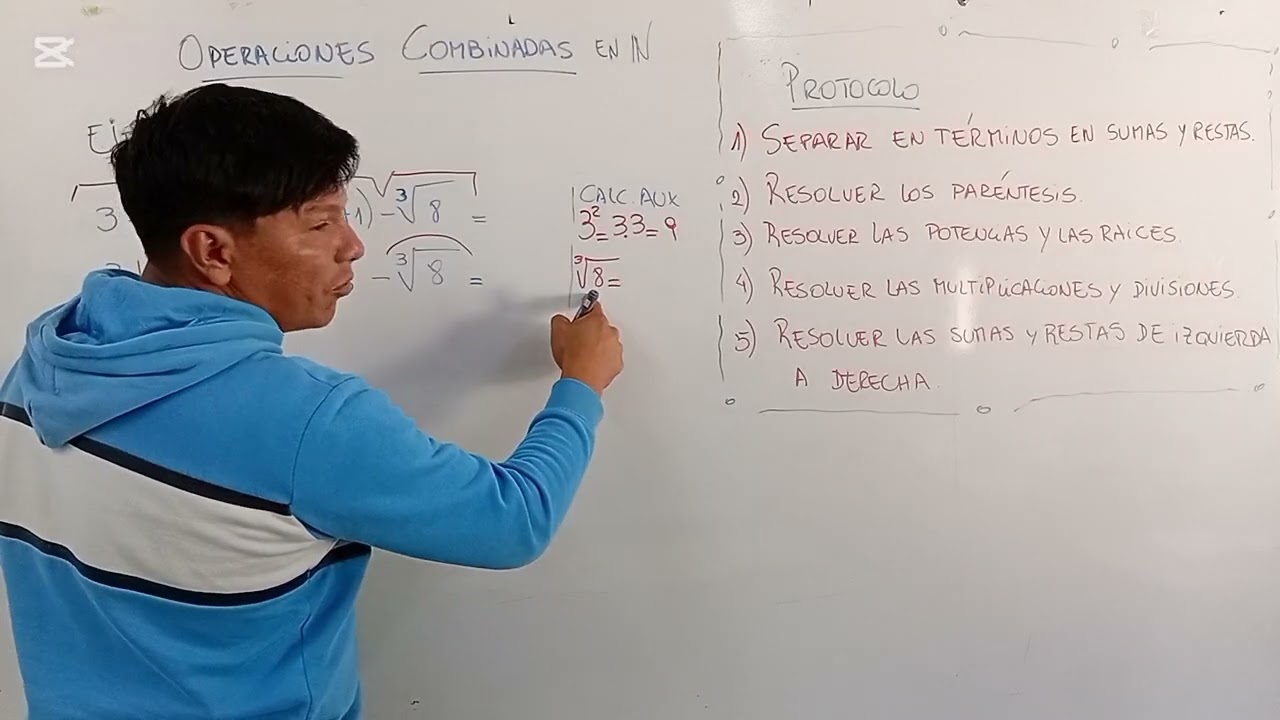 OPERACIONES COMBINADAS EN ℕ
PROTOCOLO
1) SEPARAR EN TÉRMINOS EN SUMAS Y RESTAS.
2) RESOLVER LOS PARÉNTESIS.
3) RESOLVER LAS POTENCIAS Y LAS RAICES.
4) RESOLVER LAS MULTIPLICACIONES Y DIVISIONES.
5) RESOLVER LAS SUMAS Y RESTAS DE IZQUIERDA
A DERECHA.
3
1) - ∛8 =
- ∛8 =
CALC. AUX
3² = 3.3 = 9
∛8 =